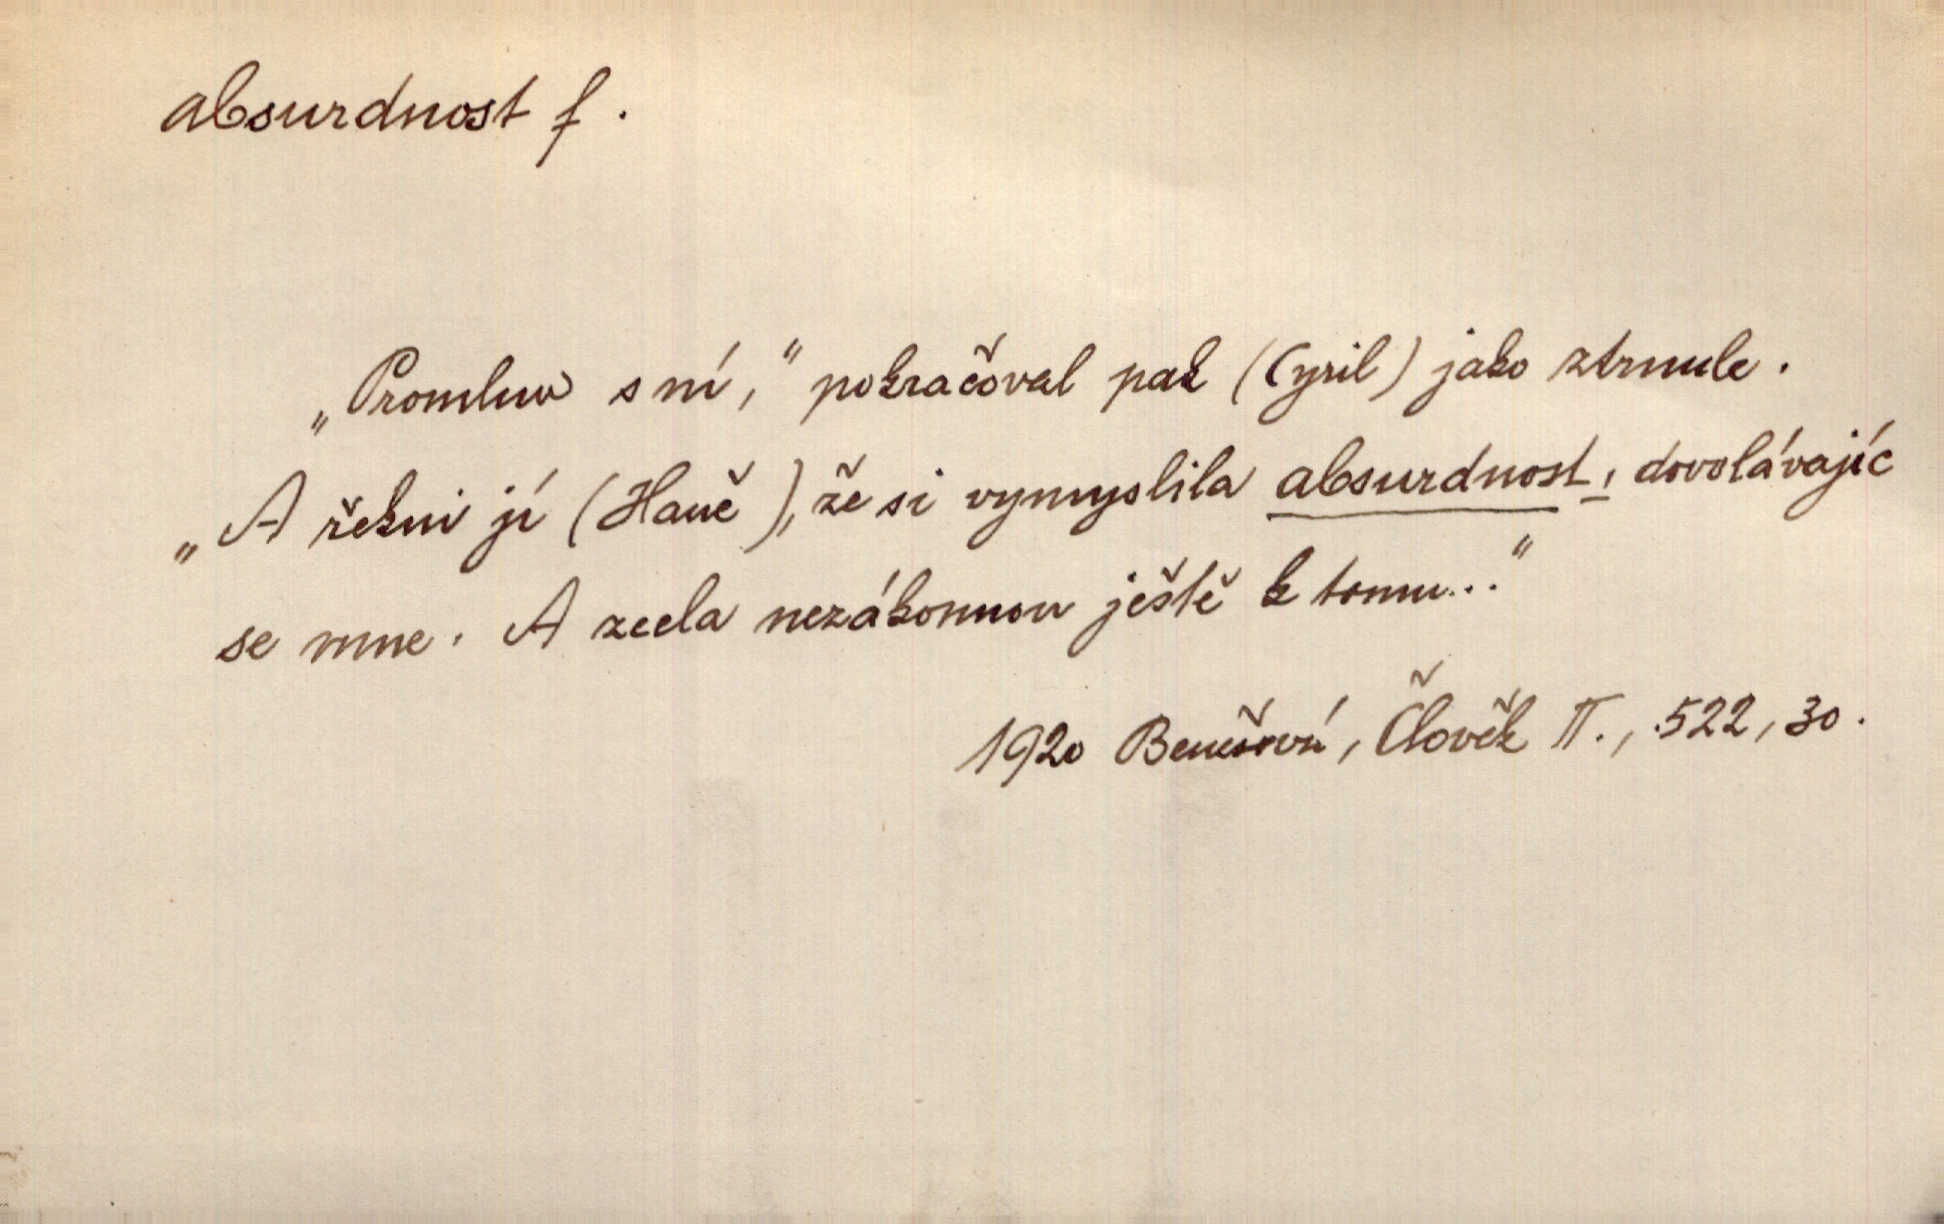 absurdnost f.
„Promluv s ní,“ pokračoval pak (Cyril) jako ztrnule.
„A řekni jí (Haně), že si vymyslila absurdnost, dovolávajíc
se mne. A zcela nezákonnou ještě k tomu...“
1920 Benešová, Člověk II., 522, 30.